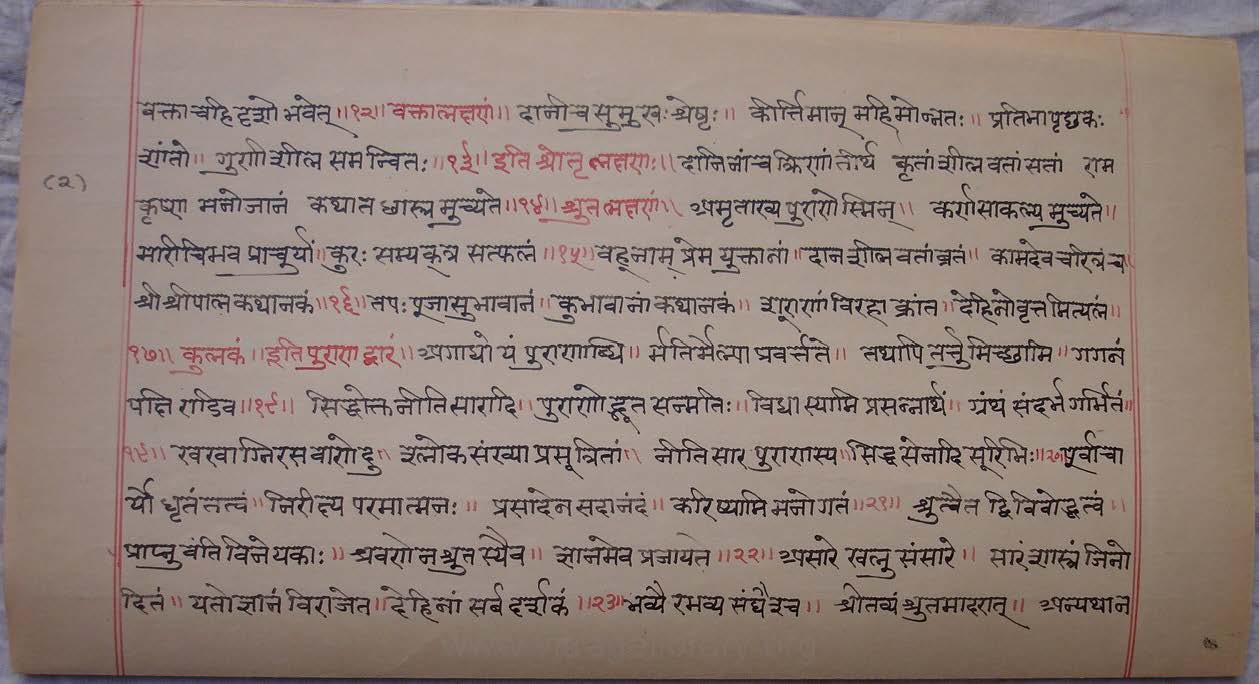 वक्ता चहि दृशो भवेत् ॥१२॥ वक्तालक्षणं॥ दानी च सुमुखः श्रेष्ठः॥ कीर्त्तिमान् महिमोन्नतः॥ प्रतिभापृछकः
शांतो॥ गुणी शील समन्वितः॥१३॥ इति श्रोतृ लक्षणः॥ दानिनांचक्रिणां तीर्थ कृतां शीलवतां सतां राम
(२)
कृष्ण मनोजानं कथात छास्त्र मुच्यते॥१४॥ श्रुत लक्षणं॥ अमृताख्य पुराणेस्मिन्॥ कर्णसाकल्य मुच्यते॥
मारीचिभव प्राचुर्यां॥ कुरः सम्यक्त्व सत्फलं॥१५॥ बहूनाम् प्रेम युक्तानां॥ दान शीलवतां व्रतं॥ कामदेव चरित्रं च
श्री श्रीपाल कथानकं॥१६॥ तपः पूजासुभावानं॥ कुभावानां कथानकं॥ शूराणां विरहा क्रांत॥ देहिनो वृत्त मित्यलं॥
१७॥ कुलकं॥ इति पुराण द्वारं॥ अगाधो यं पुराणाब्धि॥ र्मतिर्मेल्पा प्रवर्त्तते॥ तथापि तर्त्तुमिच्छामि॥ गगनं
पक्षि राडिव॥१८॥ सिद्धोक्त नीति सारादि॥ पुराणोद्भूत सन्मतिः॥ विधास्यामि प्रसन्नार्थं॥ ग्रंथं संदर्भ गर्भितं॥
१९॥ खखाग्निरस बाणेंदु॥ श्लोक संख्या प्रसूत्रितां॥ नीतिसार पुराणस्य॥ सिद्धसेनादि सूरिभिः॥२०॥ पूर्वाचा
र्यो धृतं तत्वं॥ निरीक्ष्य परमात्मनः॥ प्रसादेन सदानंदं॥ करिष्यामि मनोगतं॥२१॥ श्रुत्वैत द्विविबोद्धृत्वं॥
प्राप्नुवंति विनेयकाः॥ श्रवणेन श्रुतस्यैव॥ ज्ञानमेव प्रजायते॥२२॥ असारे खलु संसारे॥ सारं शास्त्रं जिनो
दितं॥ यतो ज्ञानं विराजेत॥ देहिनां सर्व दर्शकं॥२३॥ भव्यै रभव्य संघैश्च॥ श्रोतव्यं श्रुतमादरात्॥ अन्यथा न